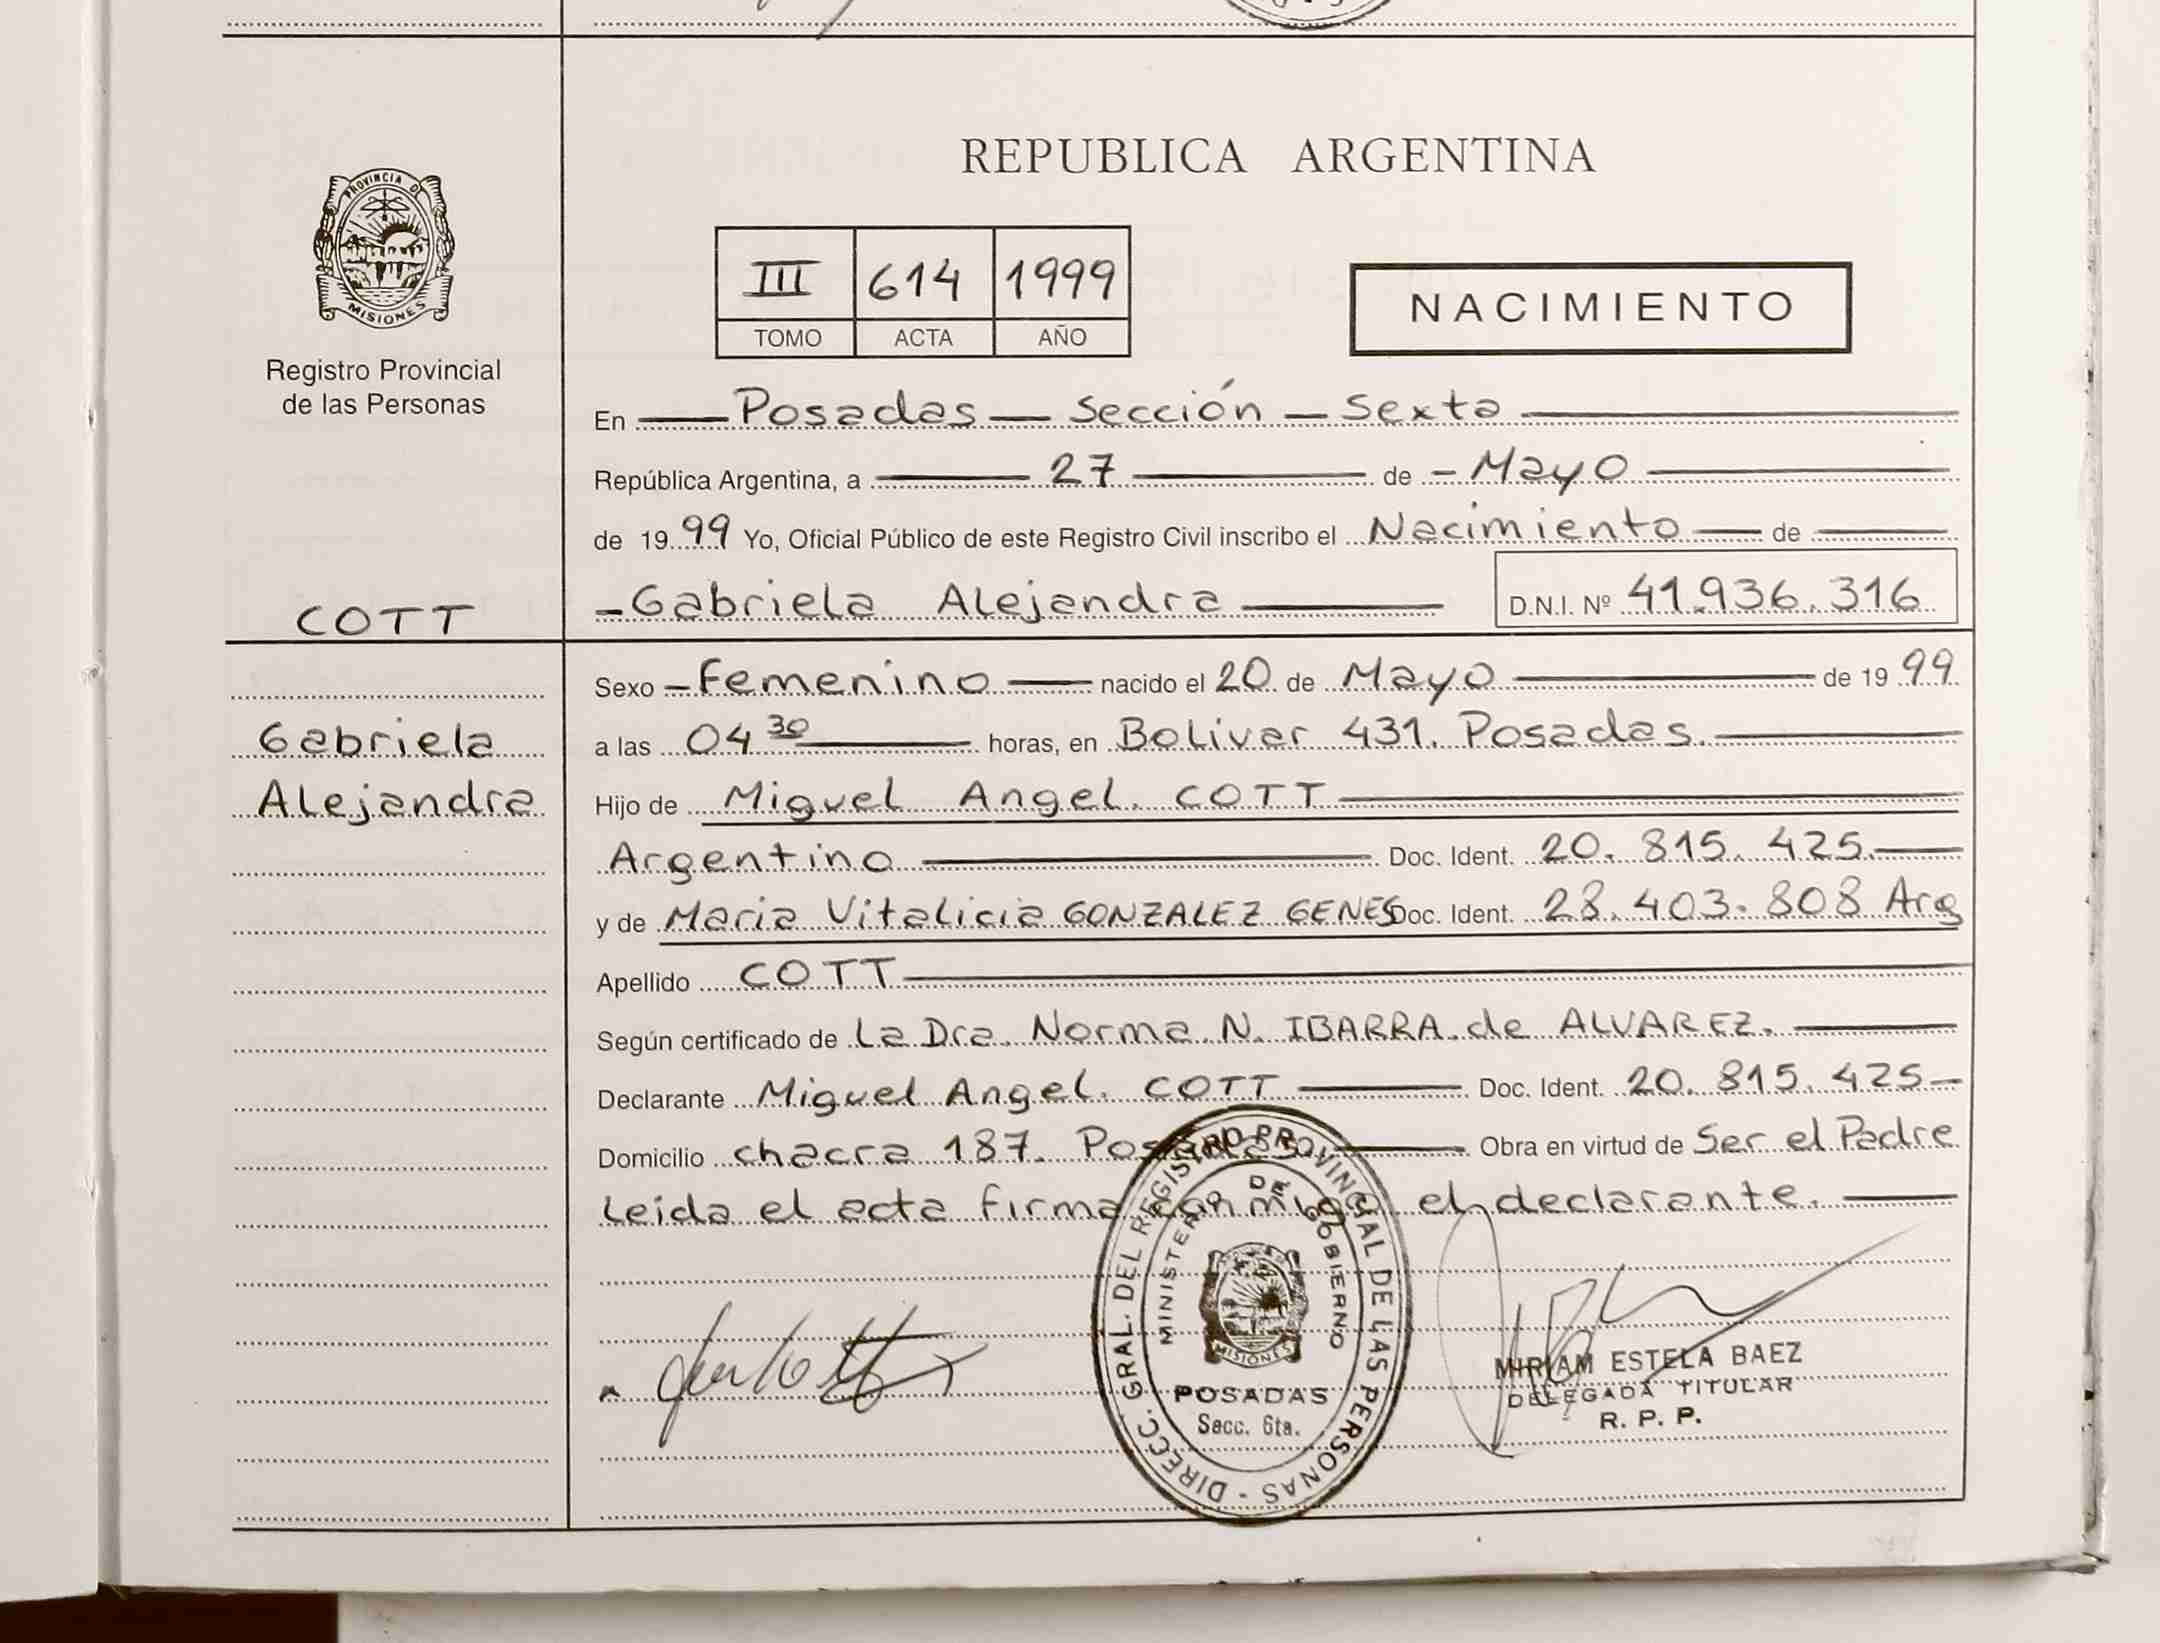 PROVINCIA DE
MISIONES
Registro Provincial
de las Personas
COTT
Gabriela
Alejandra
REPUBLICA ARGENTINA
III 614 1999
TOMO ACTA AÑO
NACIMIENTO
En Posadas - Sección - Sexta
República Argentina, a 27 de - Mayo
de 1999 Yo, Oficial Público de este Registro Civil inscribo el Nacimiento de
- Gabriela Alejandra D.N.I. Nº 41.936.316
Sexo - Femenino nacido el 20 de Mayo de 1999
a las 04 30 horas, en Bolivar 431. Posadas.
Hijo de Miguel Angel. COTT
Argentino Doc. Ident. 20.815.425.
y de Maria Vitalicia GONZALEZ GENES Doc. Ident. 28.403.808 Arg
Apellido COTT
Según certificado de La Dra. Norma N. IBARRA de ALVAREZ.
Declarante Miguel Angel. COTT Doc. Ident. 20.815.425
Domicilio chacra 187. Posadas. Obra en virtud de Ser el Padre
Leida el acta firma conmigo el declarante.
DIRECC. GRAL. DEL REGISTRO PROVINCIAL DE LAS PERSONAS
MINISTERIO DE GOBIERNO
MISIONES
POSADAS
Secc. 6ta.
MIRIAM ESTELA BAEZ
DELEGADA TITULAR
R. P. P.